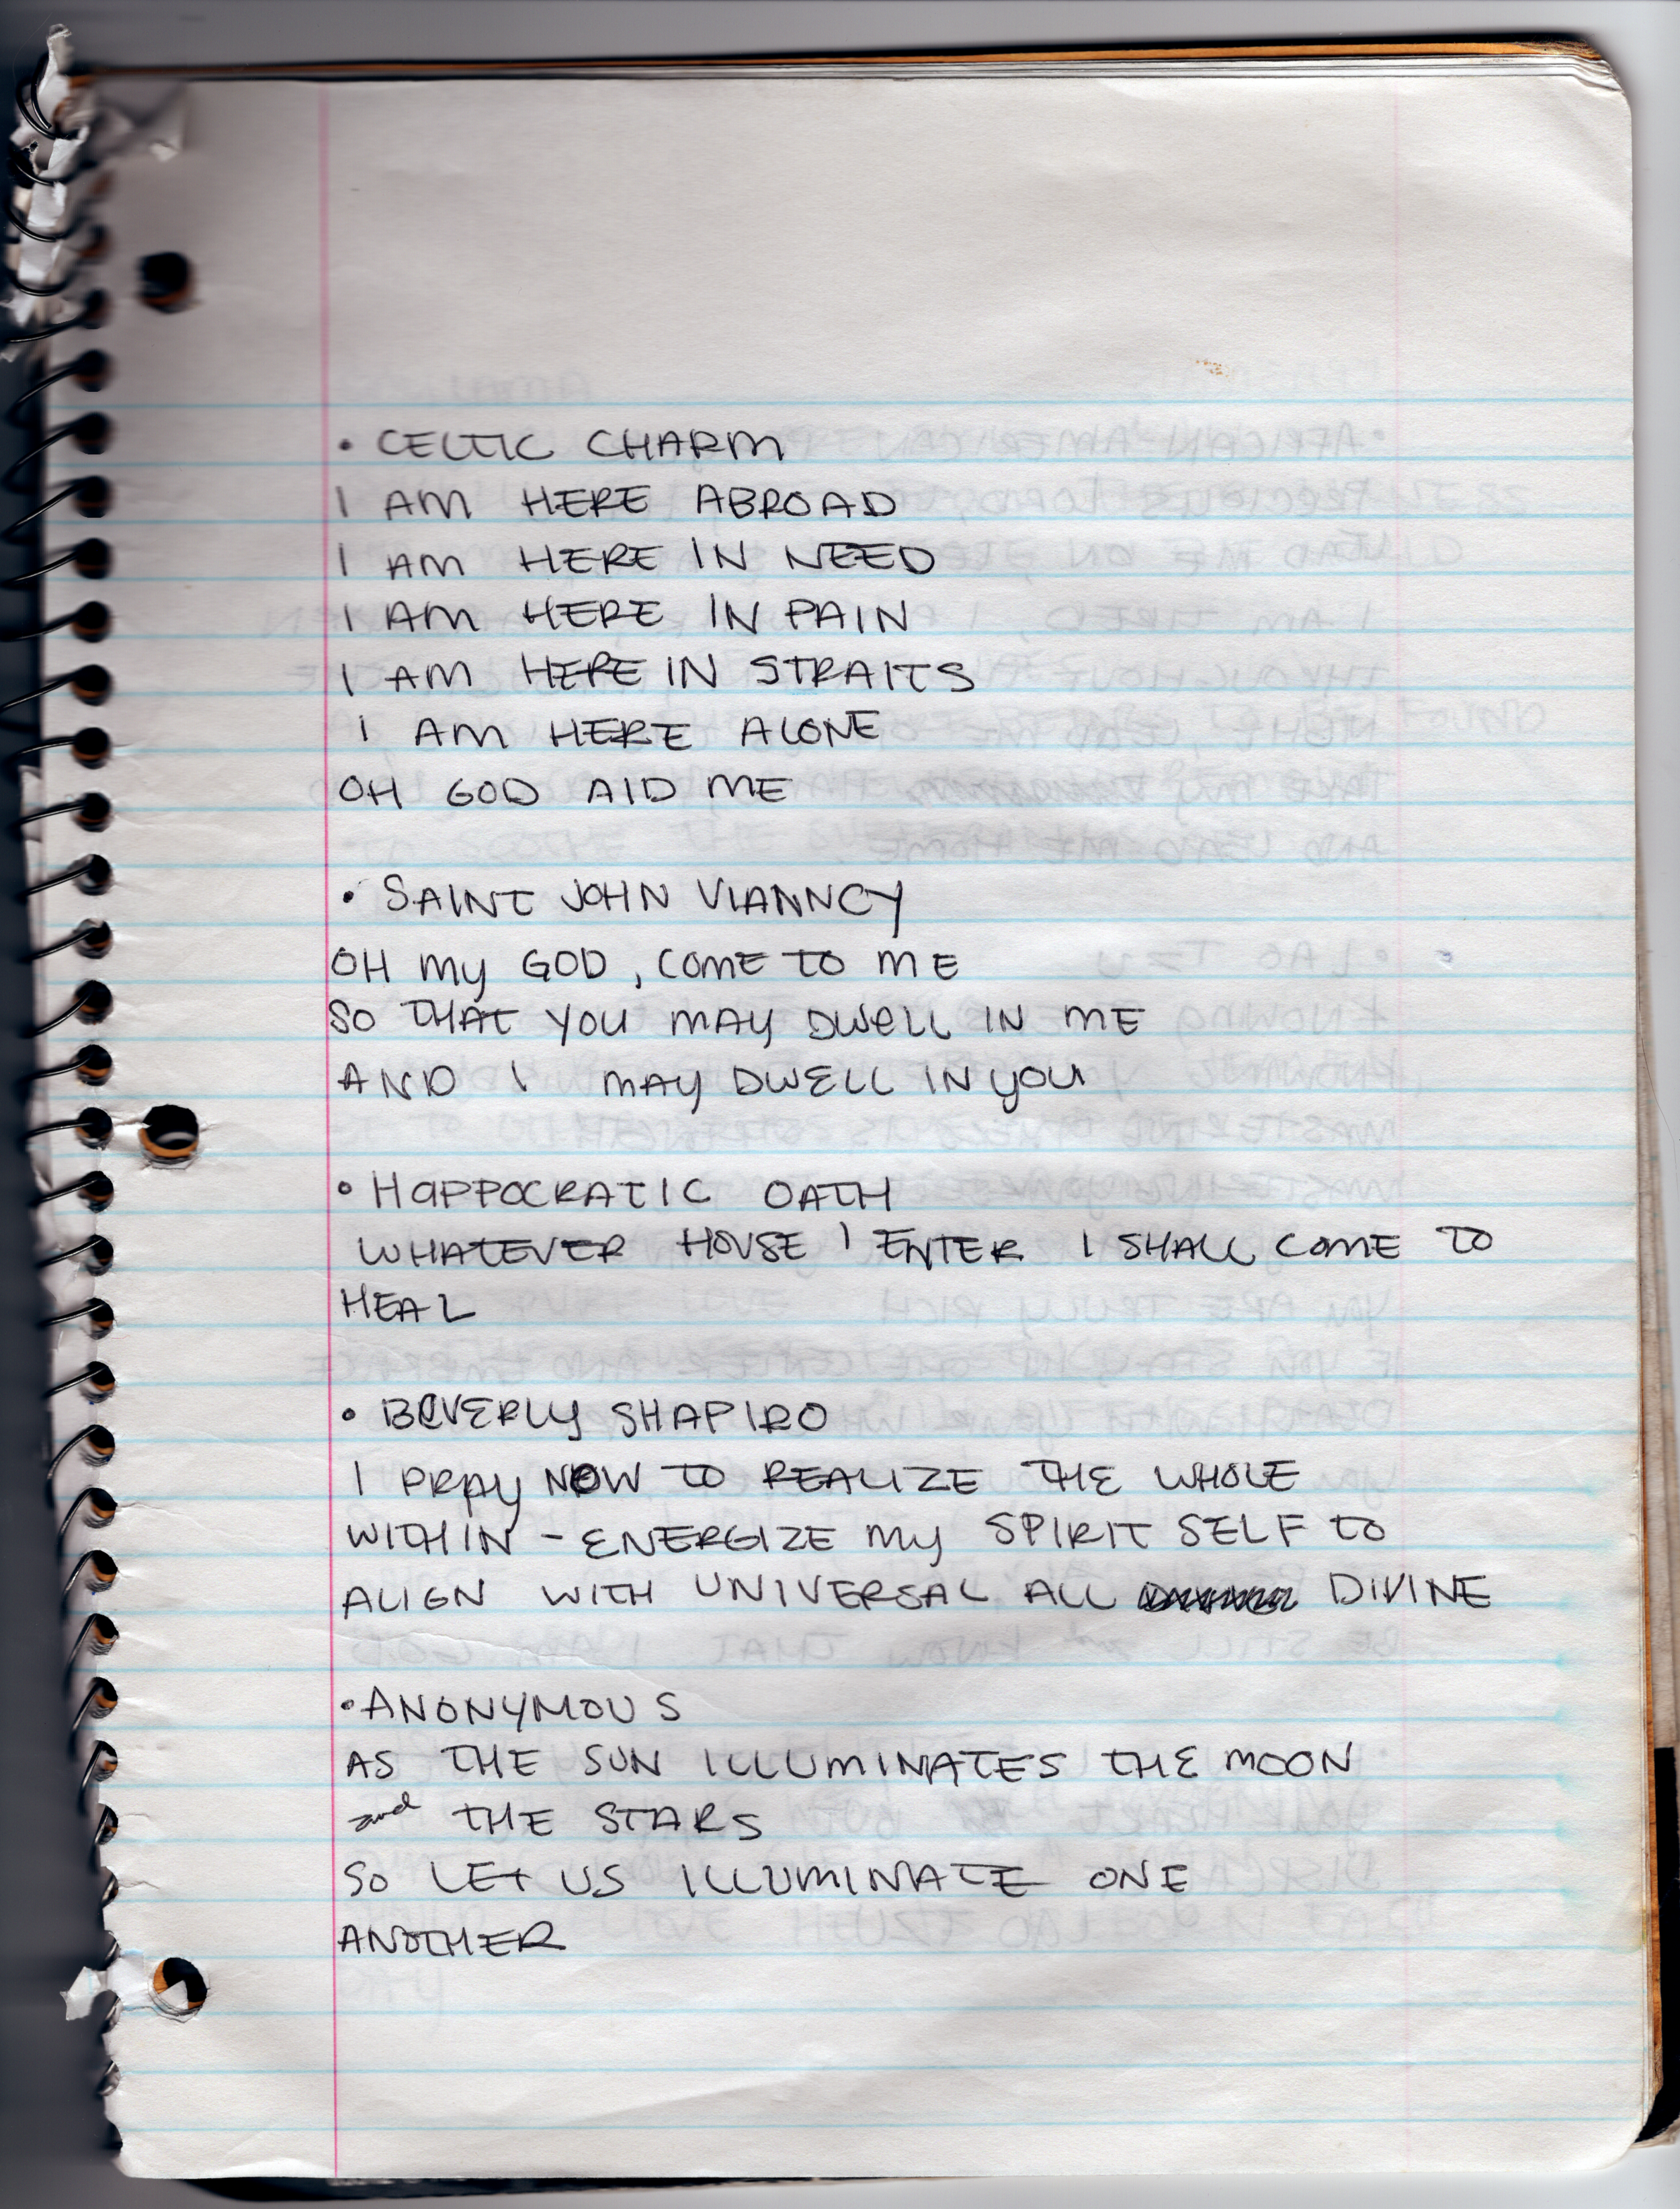 • CELTIC CHARM
I AM HERE ABROAD
I AM HERE IN NEED
I AM HERE IN PAIN
I AM HERE IN STRAITS
I AM HERE ALONE
OH GOD AID ME
• SAINT JOHN VIANNCY
OH MY GOD, COME TO ME
SO THAT YOU MAY DWELL IN ME
AND I MAY DWELL IN YOU
• HAPPOCRATIC OATH
WHATEVER HOUSE I ENTER I SHALL COME TO
HEAL
• BEVERLY SHAPIRO
I PRAY NOW TO REALIZE THE WHOLE
WITHIN - ENERGIZE MY SPIRIT SELF TO
ALIGN WITH UNIVERSAL ALL DIVINE
• ANONYMOUS
AS THE SUN ILLUMINATES THE MOON
and THE STARS
SO LET US ILLUMINATE ONE
ANOTHER